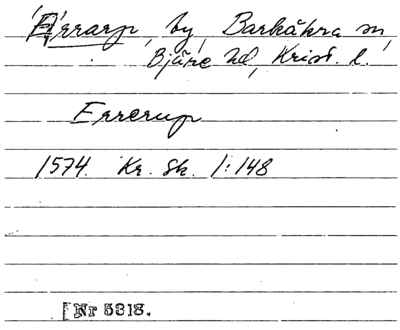 Errarp, by, Barkåkra sn,
Bjäre hd, Krist. l.
Errerup
1574. Kr. Sk. 1:148
[Nr 5318.